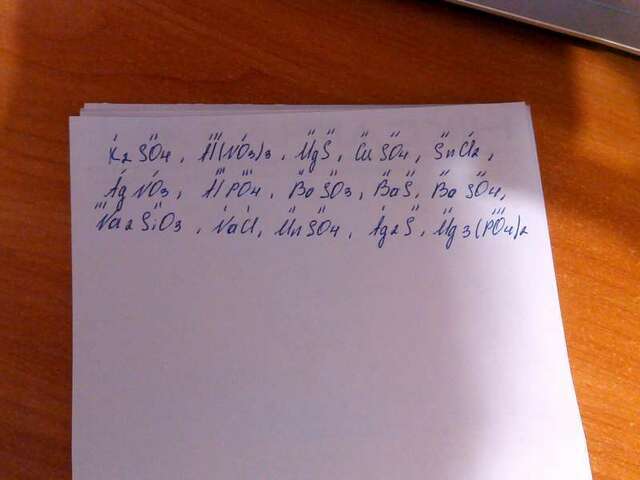 K2SO4, Al(NO3)3, MgS, CuSO4, SnCl2,
AgNO3, AlPO4, BaSO3, BaS, BaSO4,
Na2SiO3, NaCl, MnSO4, Ag2S, Mg3(PO4)2